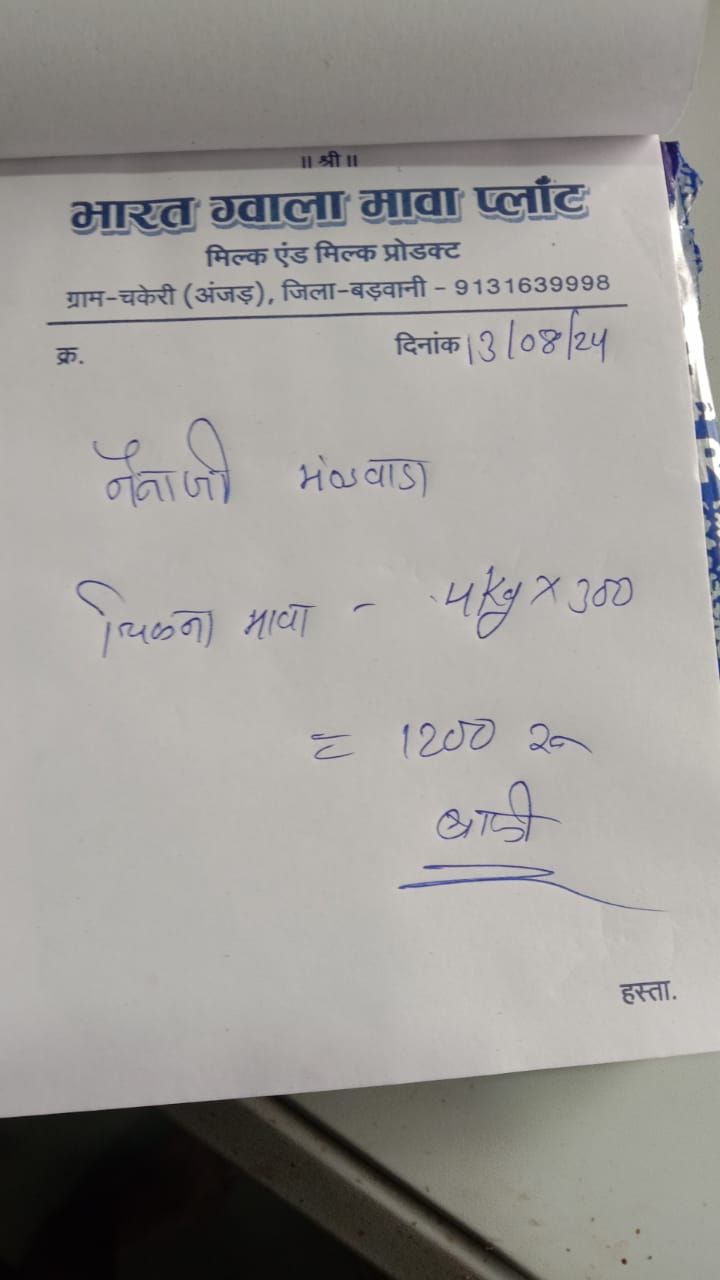 ॥ श्री ॥
भारत ग्वाला मावा प्लाँट
मिल्क एंड मिल्क प्रोडक्ट
ग्राम-चकेरी (अंजड़), जिला-बड़वानी - 9131639998
क्र. दिनांक 13/08/24
नैनाजी मंडवाडा
चिकना मावा - 4 Kg × 300
= 1200 रु
बाकी
हस्ता.